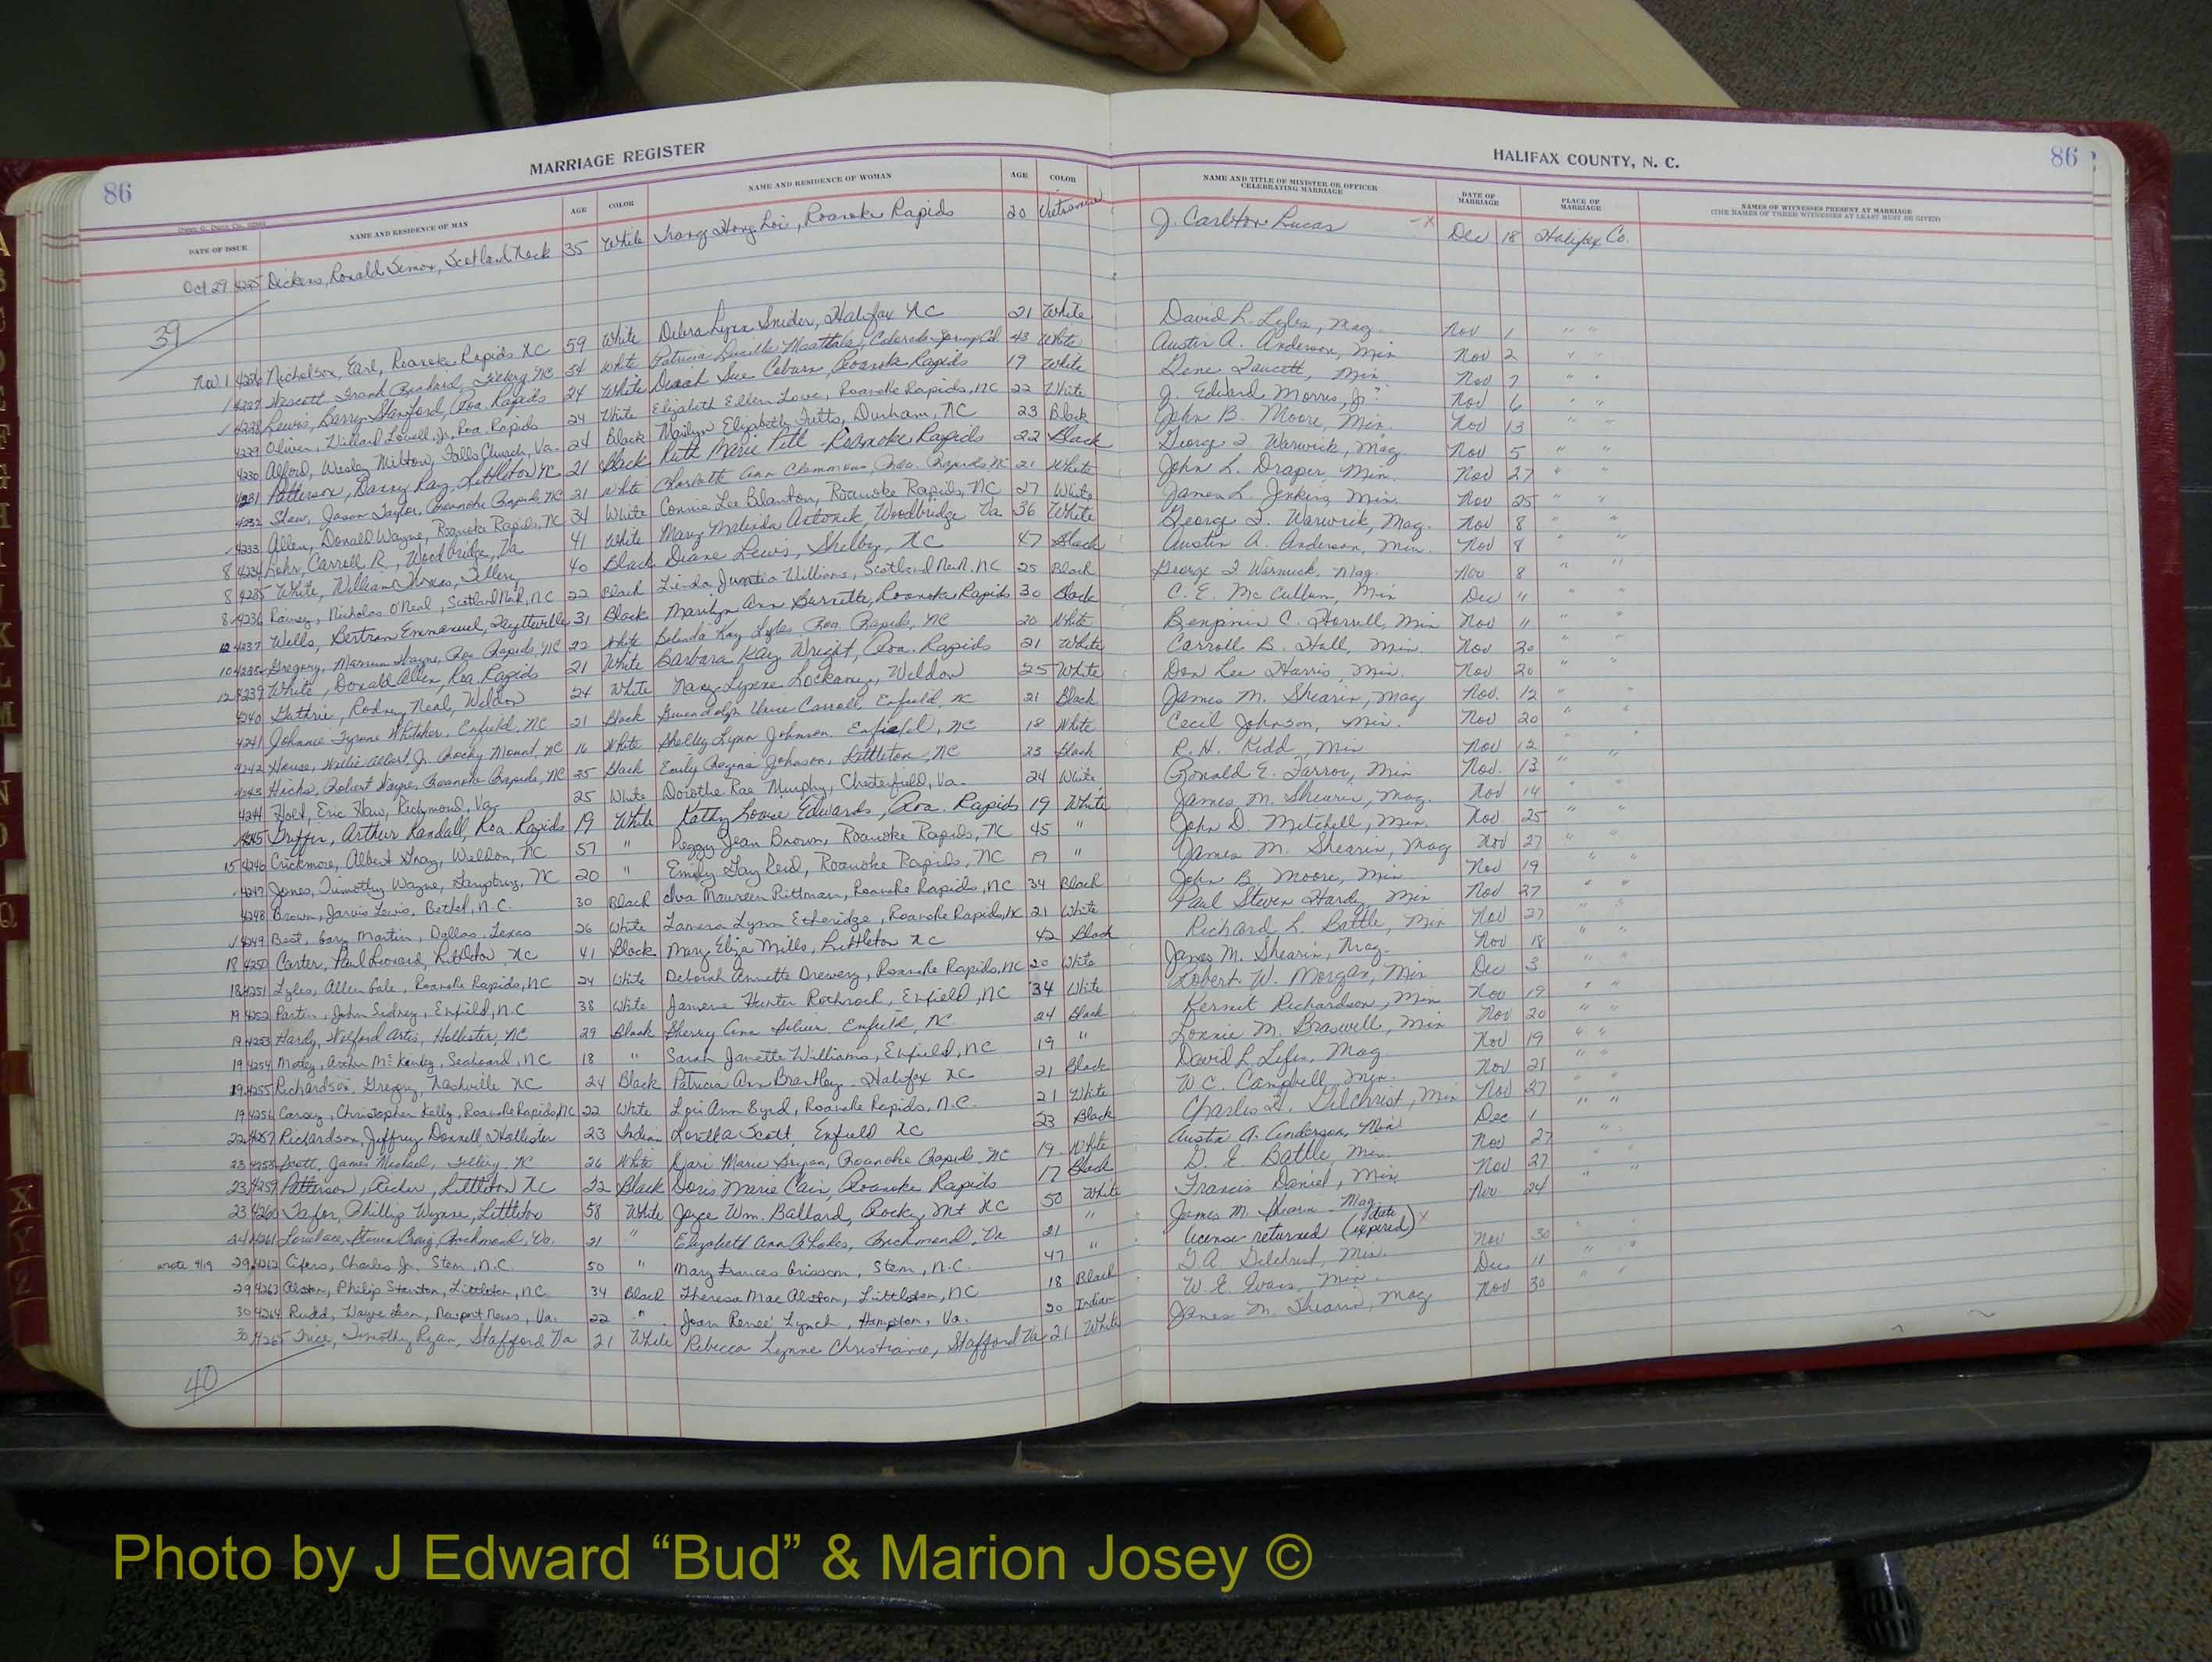 86
MARRIAGE REGISTER
HALIFAX COUNTY, N. C.
86
DATE OF ISSUE NAME AND RESIDENCE OF MAN AGE COLOR NAME AND RESIDENCE OF WOMAN AGE COLOR NAME AND TITLE OF MINISTER OR OFFICER CELEBRATING MARRIAGE DATE OF MARRIAGE PLACE OF MARRIAGE NAMES OF WITNESSES PRESENT AT MARRIAGE (THE NAMES OF THREE WITNESSES AT LEAST MUST BE GIVEN)
Oct 29 4225 Dickens, Ronald Scotland Neck 35 White Hong Loi, Roanoke Rapids 20 J. Carlton Lucas -x Dec 18 Halifax Co.
39
Nov. 1 4226 Nicholson, Earl, Roanoke Rapids NC 59 White Debra Lynn Snider, Halifax NC 21 White David L. Lyles, Mag. Nov 1 " "
4227 Wescott Frank Richard, Tillery, NC 54 White Patricia Lucille Colorado Springs Col 43 White Austin A. Anderson, Min Nov 2 " "
4228 Lewis, Barry Stanford, Roa. Rapids 24 White Dinah Sue Coburn, Roanoke Rapids 19 White Gene Faucett, Min Nov 7 " "
4229 Oliver, Willard Lowell, Jr, Roa Rapids 24 White Elizabeth Ellen Love, Roanoke Rapids, NC 22 White J. Edward Morris, Jr. Nov 6 " "
4230 Alford, Wesley Milton, Falls Church, Va. 24 Black Marilyn Elizabeth Fitts, Durham, NC 23 Black John B. Moore, Min. Nov 13 " "
4231 Patterson, Danny Ray, Littleton NC 21 Black Ruth Marie Pitt - Roanoke Rapids 22 Black George T Warwick, Mag Nov 5 " "
4232 Shaw, Jason Taylor, Roanoke Rapids NC 21 White Charlotte Ann Clemmons, Roa. Rapids NC 21 White John L. Draper, Min. Nov 27 " "
4233 Allen, Donald Wayne, Roanoke Rapids, NC 34 White Connie Lee Blanton, Roanoke Rapids, NC 27 White James L. Jenkins, Min. Nov 25 " "
8 4234 Lohr, Carroll R., Woodbridge, Va 41 White Mary Melinda Antonik, Woodbridge Va 36 White George T. Warwick, Mag. Nov 8 " "
8 4235 White, William Tillery 40 Black Diane Lewis, Shelby, NC 47 Black Austin A. Anderson, Min. Nov 8 " "
8 4236 Rainey, Nicholas O'Neal, Scotland Neck, NC 22 Black Linda Williams, Scotland Neck, NC 25 Black George T Warwick, Mag. Nov 8 " "
12 4237 Wells, Bertram Emmanuel, Fayetteville 31 Black Marilyn Ann Roanoke Rapids 30 Black C. E. McCullum, Min Dec 11 " "
10 4238 Gregory, Wayne, Roa Rapids, NC 22 White Belinda Kay Lyles Roa. Rapids, NC 20 White Benjamin C. Horrell, Min Nov 11 " "
12 4239 White, Donald Allen, Roa. Rapids 21 White Barbara Kay Wright, Roa. Rapids 21 White Carroll B. Hall, Min Nov 20 " "
4240 Guthrie, Rodney Neal, Weldon 24 White Nancy Lynne Weldon 25 White Don Lee Harris, Min. Nov 20 " "
4241 Johnnie Tyrone Whitaker, Enfield, NC 21 Black Gwendolyn Carroll Enfield, NC 21 Black James M. Shearin, Mag Nov. 12 " "
4242 House, Willie Albert Jr. Rocky Mount, NC 16 White Shelley Lynn Johnson. Enfield, NC 18 White Cecil Johnson, Min. Nov 20 " "
4243 Hicks, Robert Wayne, Roanoke Rapids, NC 25 Black Emily Regina Johnson, Littleton, NC 23 Black R. H. Kidd, Min Nov 12 " "
4244 Holt, Eric Richmond, Va. 25 White Dorothe Rae Murphy, Chesterfield, Va. 24 White Ronald E. Farror, Min Nov. 13 "
4245 Griffin, Arthur Randall, Roa. Rapids 19 White Kathy Louise Edwards, Roa. Rapids 19 White James M. Shearin, Mag. Nov 14 " "
15 4246 Crickmore, Albert Gray, Weldon, NC 57 " Peggy Jean Brown, Roanoke Rapids, NC 45 " John D. Mitchell, Min. Nov 25 " "
4247 Jones, Timothy Wayne, Garysburg, NC 20 " Emily Gay Reid, Roanoke Rapids, NC 19 " James M. Shearin, Mag Nov 27 " "
4248 Brown, Jarvis Lewis, Bethel, N.C. 30 Black Iva Maureen Pittman, Roanoke Rapids, NC 34 Black John B Moore, Min Nov 19 " "
4249 Best, Gary Martin, Dallas, Texas 26 White Lamera Lynn Etheridge, Roanoke Rapids, NC 21 White Paul Steven Hardy, Min Nov 27 " "
18 4250 Carter, Paul Leonard, Littleton NC 41 Black Mary Eliza Mills, Littleton NC 42 Black Richard L. Battle, Min Nov 27 " "
18 4251 Lyles, Allen Gale, Roanoke Rapids, NC 24 White Deborah Annette Drewery, Roanoke Rapids, NC 20 White James M. Shearin, Mag. Nov 18 " "
19 4252 Partin, John Sidney, Enfield, N.C 38 White Hunter Rothrock, Enfield, NC 34 White Robert W. Morgan, Min Dec 3 " "
19 4253 Hardy, Wilford Artis, Hollister, NC 29 Black Sherry Ann Silver Enfield, NC. 24 Black Kermit Richardson, Min Nov 19 " "
19 4254 Motley, Archer McKinley, Seaboard, NC 18 " Sarah Janette Williams, Enfield, NC 19 " Lonnie M. Braswell, Min Nov 20 " "
19 4255 Richardson, Gregory, Nashville NC 24 Black Patricia Ann Brantley - Halifax NC 21 Black David L Lyles, Mag. Nov 19 " "
19 4256 Christopher Kelly, Roanoke Rapids, NC 22 White Lori Ann Byrd, Roanoke Rapids, N.C. 21 White W. C. Campbell, Min. Nov 21 " "
22 4257 Richardson, Jeffrey Donnell Hollister 23 Indian Loretta Scott, Enfield NC 23 Black Charles H. Gilchrist, Min Nov 27 " "
23 4258 Scott, James Michael, Tillery, NC 26 White Marie Bryan, Roanoke Rapids, NC 19 White Austin A. Anderson, Min Dec 1 " "
23 4259 Patterson, Littleton NC 22 Black Doris Marie Cain, Roanoke Rapids 17 Black G. E. Battle, Min. Nov 27 " "
23 4260 Taylor, Phillip Wynne, Littleton 58 White Joyce Wm. Ballard, Rocky Mt NC 50 White Francis Daniel, Min Nov 27 " "
24 4261 Lovelace, Steven Craig, Richmond, Va. 21 " Elizabeth Ann Richmond, Va 21 " James M. Shearin Mag. Nov 24
wrote 4/19 29 4262 Cifers, Charles Jr. Stem, N.C. 50 " Mary Frances Grissom, Stem, N.C. 47 " license returned (date expired) x
29 4263 Alston, Philip Stanton, Littleton, NC. 34 Black Theresa Mae Alston, Littleton, NC 18 Black Gilchrist, Min. Nov 30 " "
30 4264 Rudd, Wayne Newport News, Va. 22 " Joan Reneé Lynch, Hampton, Va. 20 Indian W. E. Evans, Min. Dec 11 " "
30 4265 Timothy Ryan, Stafford Va 21 White Rebecca Lynne Christianie, Stafford Va 21 White James M. Shearin, Mag Nov 30 " "
40
Photo by J Edward “Bud” & Marion Josey ©